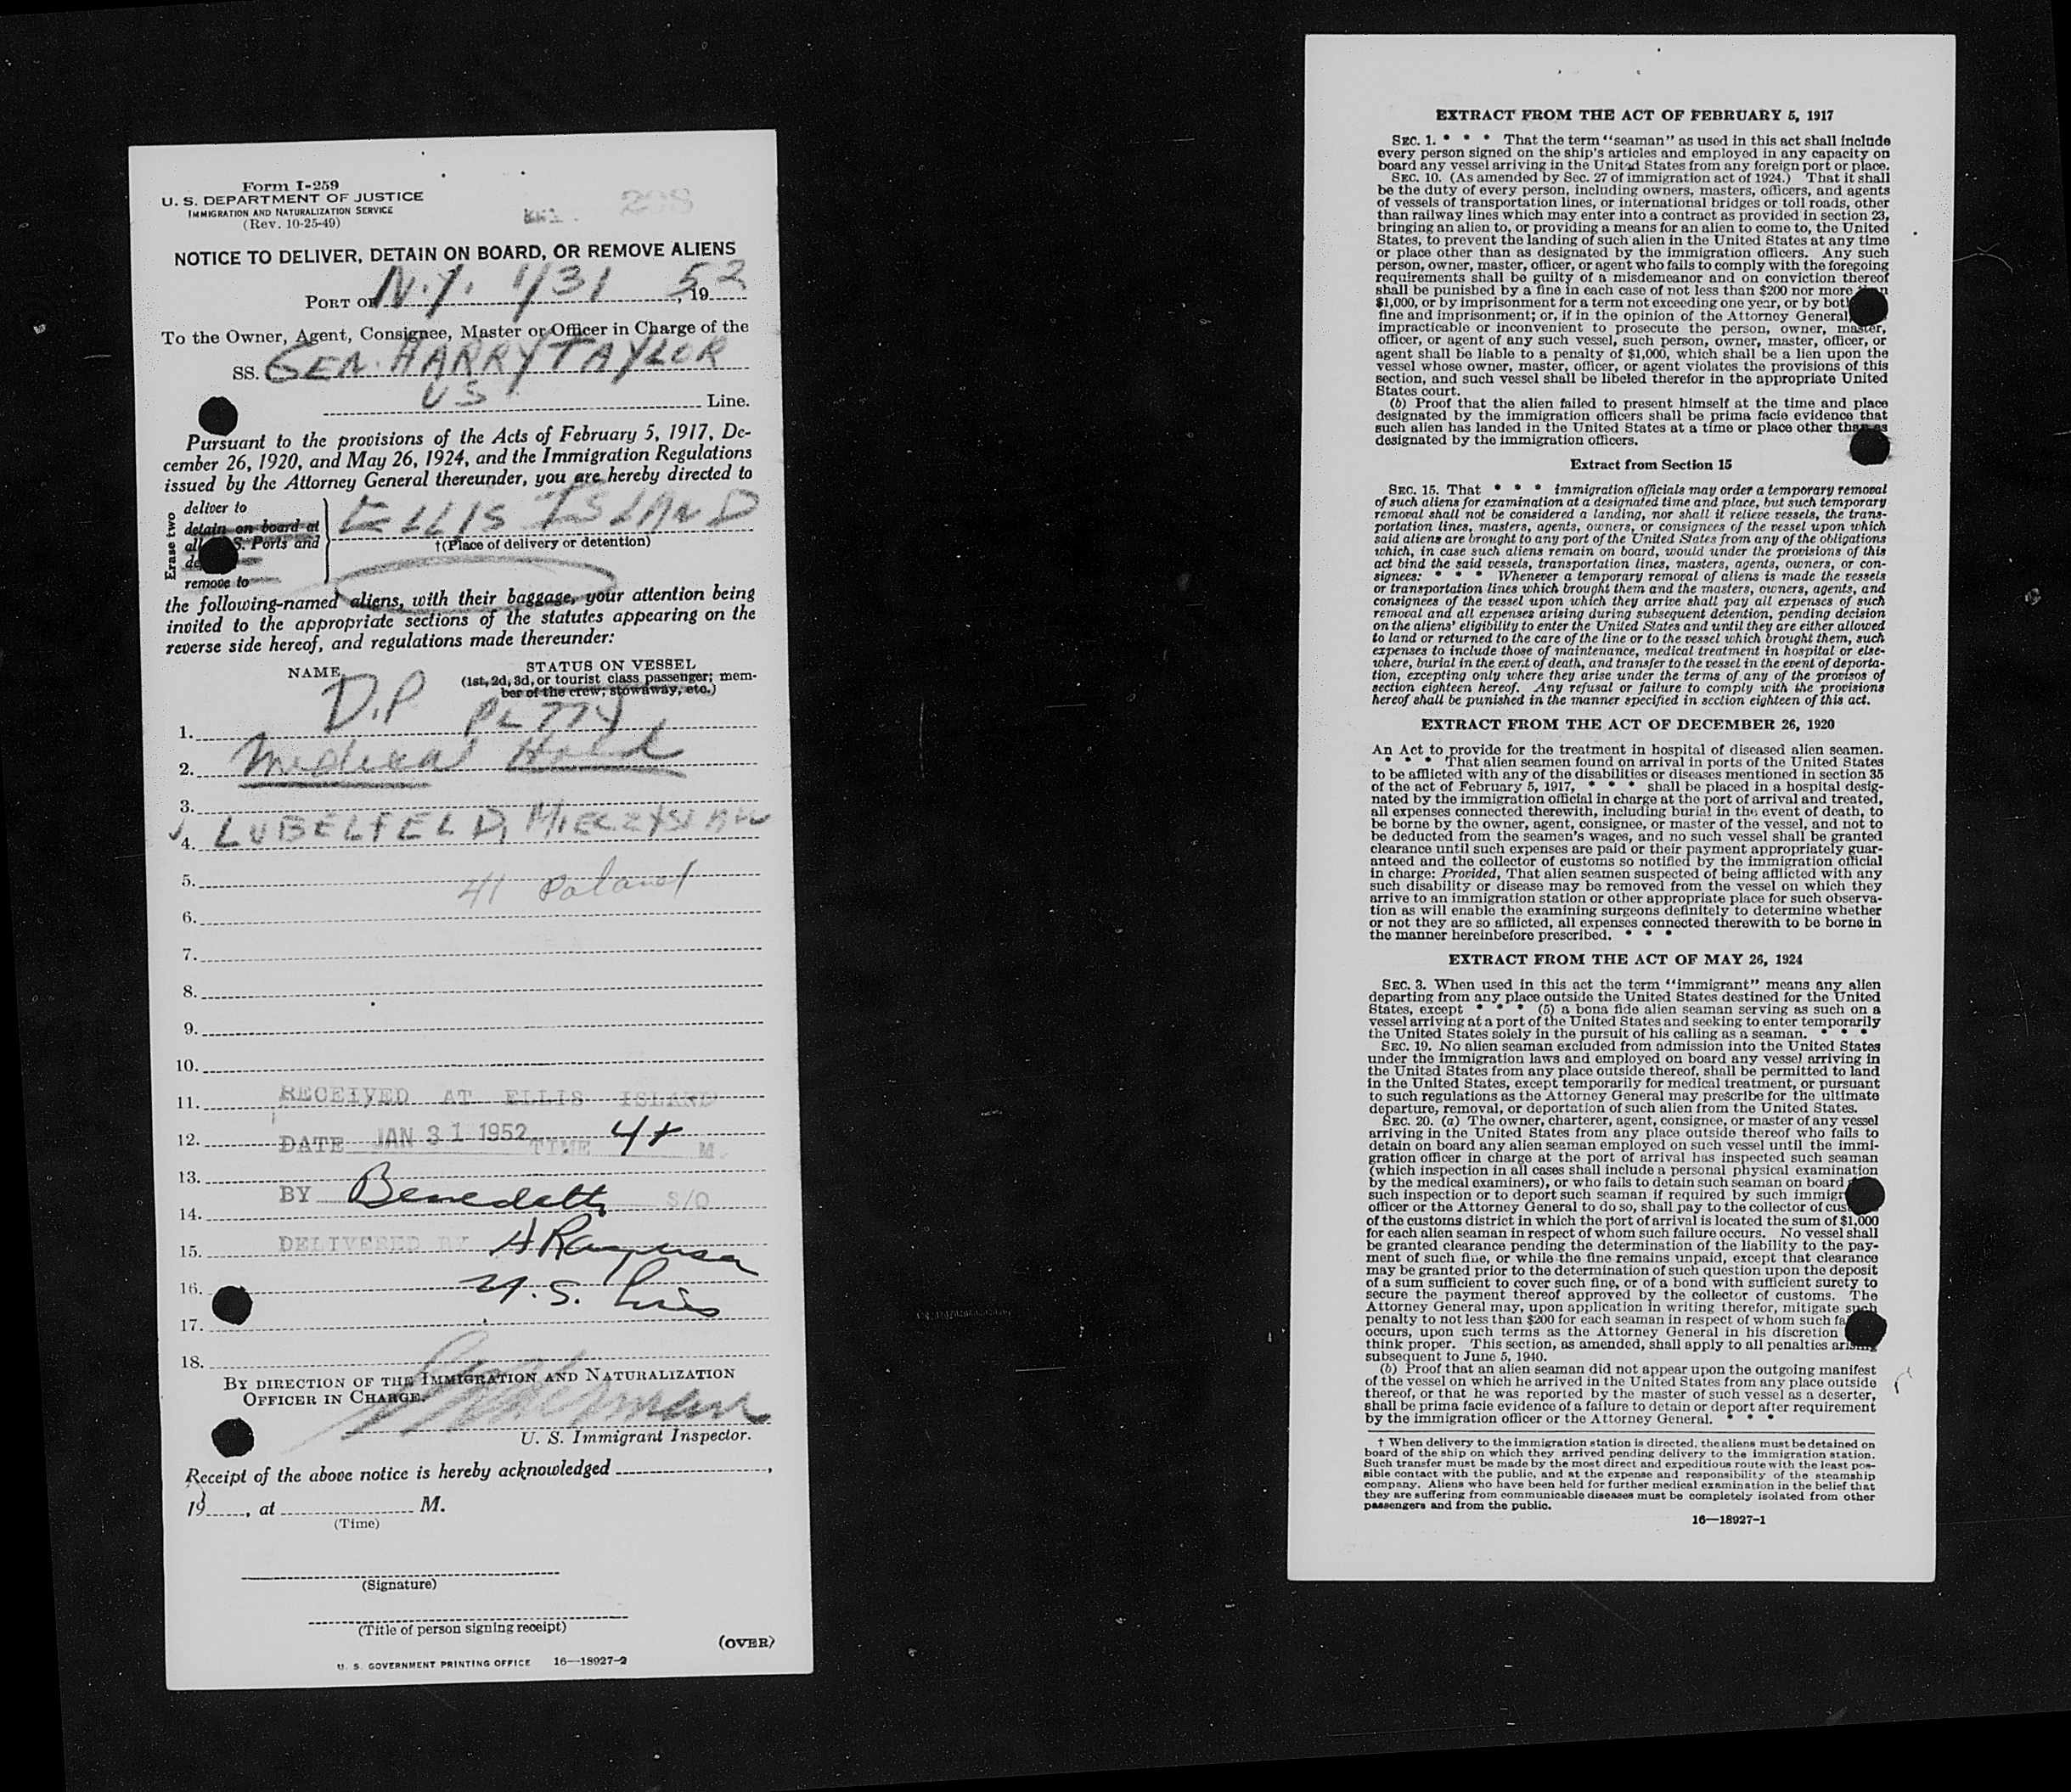 Form I-259
U. S. DEPARTMENT OF JUSTICE
IMMIGRATION AND NATURALIZATION SERVICE
(Rev. 10-25-49)
NOTICE TO DELIVER, DETAIN ON BOARD, OR REMOVE ALIENS
PORT OF N.Y. 1/31, 1952
To the Owner, Agent, Consignee, Master or Officer in Charge of the
SS. GEN. HARRY TAYLOR
US Line.
Pursuant to the provisions of the Acts of February 5, 1917, De-
cember 26, 1920, and May 26, 1924, and the Immigration Regulations
issued by the Attorney General thereunder, you are hereby directed to
Erase two
deliver to
detain on board at
all S. Ports and
de
remove to
ELLIS ISLAND
†(Place of delivery or detention)
the following-named aliens, with their baggage, your attention being
invited to the appropriate sections of the statutes appearing on the
reverse side hereof, and regulations made thereunder:
NAME STATUS ON VESSEL
(1st, 2d, 3d, or tourist class passenger; mem-
ber of the crew; stowaway, etc.)
D.P
1.
2. Medical Hold
3.
4. LUBELFELD, MIECZYSLAW
5. 41 Poland
6.
7.
8.
9.
10.
11. RECEIVED AT ELLIS ISLAND
12. DATE JAN 31 1952 TIME 4 M
13.
BY Benedetti S/O
14.
15. DELIVERED BY
16. U.S. Lines
17.
18.
BY DIRECTION OF THE IMMIGRATION AND NATURALIZATION
OFFICER IN CHARGE.
U. S. Immigrant Inspector.
Receipt of the above notice is hereby acknowledged ,
19 , at M.
(Time)
(Signature)
(Title of person signing receipt)
(OVER)
U. S. GOVERNMENT PRINTING OFFICE 16—18927-2
EXTRACT FROM THE ACT OF FEBRUARY 5, 1917
SEC. 1. * * * That the term "seaman" as used in this act shall include
every person signed on the ship's articles and employed in any capacity on
board any vessel arriving in the United States from any foreign port or place.
SEC. 10. (As amended by Sec. 27 of immigration act of 1924.) That it shall
be the duty of every person, including owners, masters, officers, and agents
of vessels of transportation lines, or international bridges or toll roads, other
than railway lines which may enter into a contract as provided in section 23,
bringing an alien to, or providing a means for an alien to come to, the United
States, to prevent the landing of such alien in the United States at any time
or place other than as designated by the immigration officers. Any such
person, owner, master, officer, or agent who fails to comply with the foregoing
requirements shall be guilty of a misdemeanor and on conviction thereof
shall be punished by a fine in each case of not less than $200 nor more than
$1,000, or by imprisonment for a term not exceeding one year, or by both
fine and imprisonment; or, if in the opinion of the Attorney General,
impracticable or inconvenient to prosecute the person, owner, master,
officer, or agent of any such vessel, such person, owner, master, officer, or
agent shall be liable to a penalty of $1,000, which shall be a lien upon the
vessel whose owner, master, officer, or agent violates the provisions of this
section, and such vessel shall be libeled therefor in the appropriate United
States court.
(b) Proof that the alien failed to present himself at the time and place
designated by the immigration officers shall be prima facie evidence that
such alien has landed in the United States at a time or place other than as
designated by the immigration officers.
Extract from Section 15
SEC. 15. That * * * immigration officials may order a temporary removal
of such aliens for examination at a designated time and place, but such temporary
removal shall not be considered a landing, nor shall it relieve vessels, the trans-
portation lines, masters, agents, owners, or consignees of the vessel upon which
said aliens are brought to any port of the United States from any of the obligations
which, in case such aliens remain on board, would under the provisions of this
act bind the said vessels, transportation lines, masters, agents, owners, or con-
signees: * * * Whenever a temporary removal of aliens is made the vessels
or transportation lines which brought them and the masters, owners, agents, and
consignees of the vessel upon which they arrive shall pay all expenses of such
removal and all expenses arising during subsequent detention, pending decision
on the aliens' eligibility to enter the United States and until they are either allowed
to land or returned to the care of the line or to the vessel which brought them, such
expenses to include those of maintenance, medical treatment in hospital or else-
where, burial in the event of death, and transfer to the vessel in the event of deporta-
tion, excepting only where they arise under the terms of any of the provisos of
section eighteen hereof. Any refusal or failure to comply with the provisions
hereof shall be punished in the manner specified in section eighteen of this act.
EXTRACT FROM THE ACT OF DECEMBER 26, 1920
An Act to provide for the treatment in hospital of diseased alien seamen.
* * * That alien seamen found on arrival in ports of the United States
to be afflicted with any of the disabilities or diseases mentioned in section 35
of the act of February 5, 1917, * * * shall be placed in a hospital desig-
nated by the immigration official in charge at the port of arrival and treated,
all expenses connected therewith, including burial in the event of death, to
be borne by the owner, agent, consignee, or master of the vessel, and not to
be deducted from the seamen's wages, and no such vessel shall be granted
clearance until such expenses are paid or their payment appropriately guar-
anteed and the collector of customs so notified by the immigration official
in charge: Provided, That alien seamen suspected of being afflicted with any
such disability or disease may be removed from the vessel on which they
arrive to an immigration station or other appropriate place for such observa-
tion as will enable the examining surgeons definitely to determine whether
or not they are so afflicted, all expenses connected therewith to be borne in
the manner hereinbefore prescribed. * * *
EXTRACT FROM THE ACT OF MAY 26, 1924
SEC. 3. When used in this act the term "immigrant" means any alien
departing from any place outside the United States destined for the United
States, except * * * (5) a bona fide alien seaman serving as such on a
vessel arriving at a port of the United States and seeking to enter temporarily
the United States solely in the pursuit of his calling as a seaman. * * *
SEC. 19. No alien seaman excluded from admission into the United States
under the immigration laws and employed on board any vessel arriving in
the United States from any place outside thereof, shall be permitted to land
in the United States, except temporarily for medical treatment, or pursuant
to such regulations as the Attorney General may prescribe for the ultimate
departure, removal, or deportation of such alien from the United States.
SEC. 20. (a) The owner, charterer, agent, consignee, or master of any vessel
arriving in the United States from any place outside thereof who fails to
detain on board any alien seaman employed on such vessel until the immi-
gration officer in charge at the port of arrival has inspected such seaman
(which inspection in all cases shall include a personal physical examination
by the medical examiners), or who fails to detain such seaman on board
such inspection or to deport such seaman if required by such immigr
officer or the Attorney General to do so, shall pay to the collector of cus
of the customs district in which the port of arrival is located the sum of $1,000
for each alien seaman in respect of whom such failure occurs. No vessel shall
be granted clearance pending the determination of the liability to the pay-
ment of such fine, or while the fine remains unpaid, except that clearance
may be granted prior to the determination of such question upon the deposit
of a sum sufficient to cover such fine, or of a bond with sufficient surety to
secure the payment thereof approved by the collector of customs. The
Attorney General may, upon application in writing therefor, mitigate such
penalty to not less than $200 for each seaman in respect of whom such fa
occurs, upon such terms as the Attorney General in his discretion
think proper. This section, as amended, shall apply to all penalties arising
subsequent to June 5, 1940.
(b) Proof that an alien seaman did not appear upon the outgoing manifest
of the vessel on which he arrived in the United States from any place outside
thereof, or that he was reported by the master of such vessel as a deserter,
shall be prima facie evidence of a failure to detain or deport after requirement
by the immigration officer or the Attorney General. * * *
† When delivery to the immigration station is directed, the aliens must be detained on
board of the ship on which they arrived pending delivery to the immigration station.
Such transfer must be made by the most direct and expeditious route with the least pos-
sible contact with the public, and at the expense and responsibility of the steamship
company. Aliens who have been held for further medical examination in the belief that
they are suffering from communicable diseases must be completely isolated from other
passengers and from the public.
16—18927-1